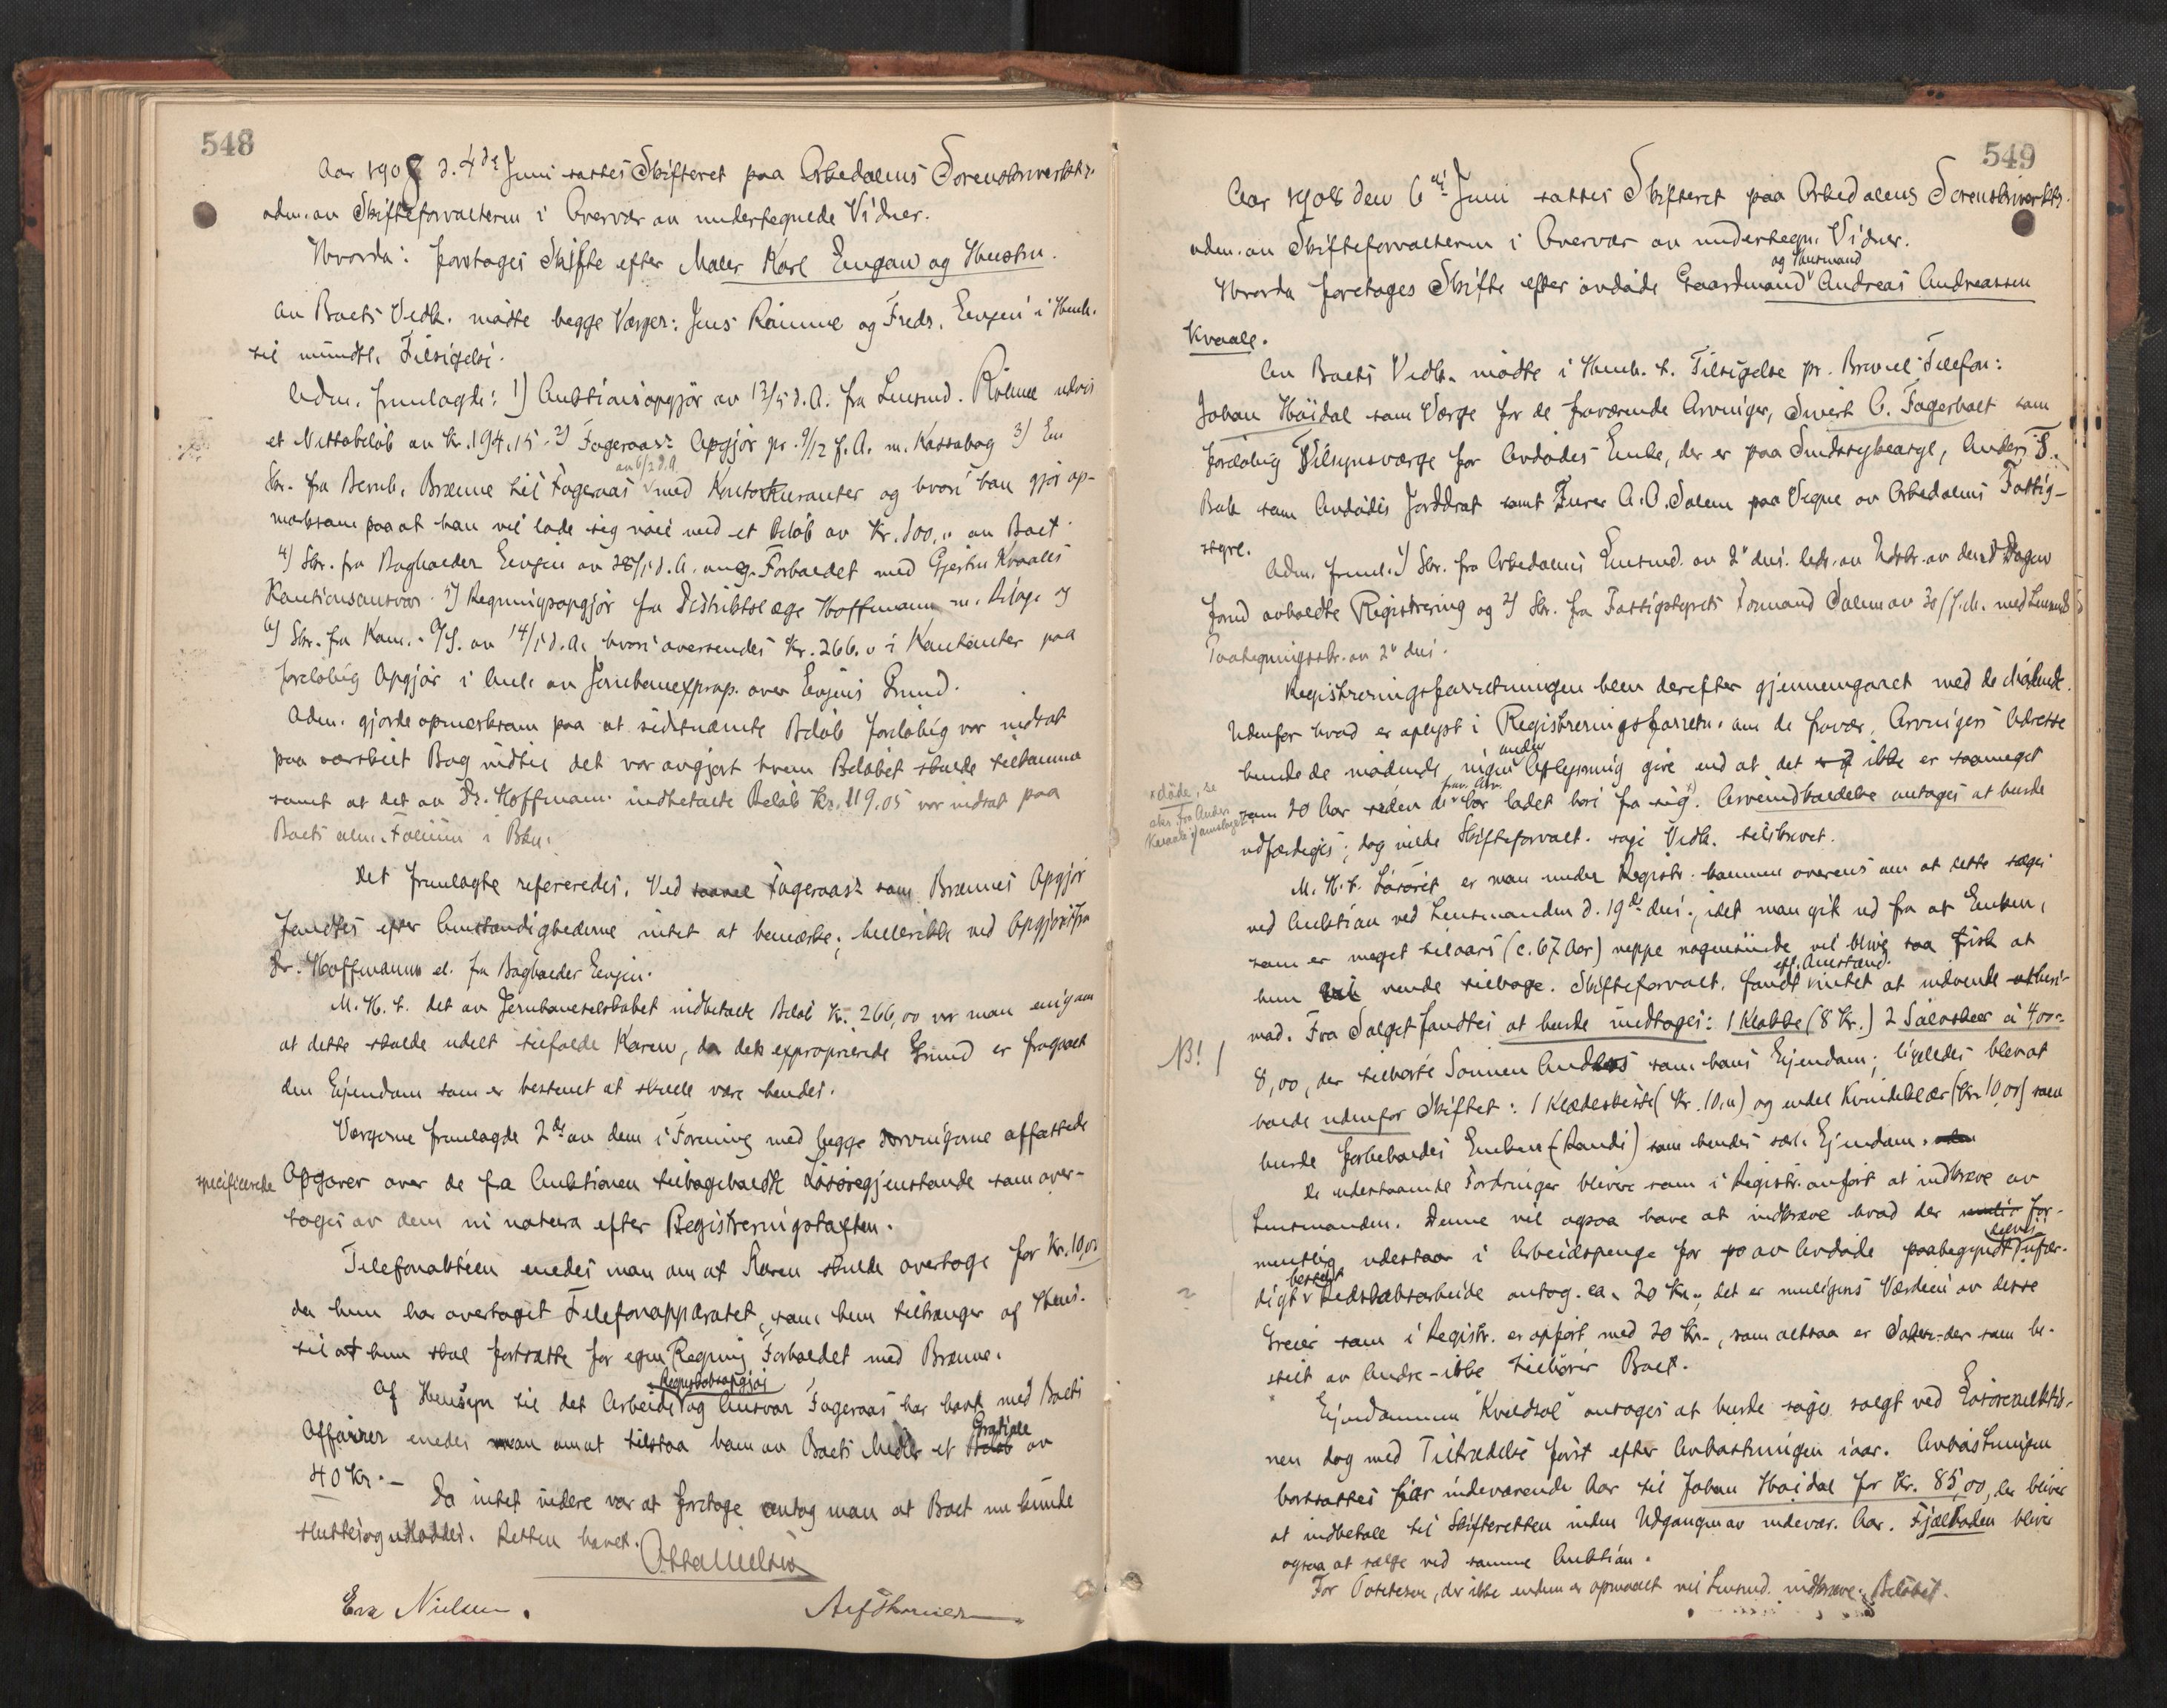 548
Aar 1908 d. 4de Juni sattes Skifteret paa Orkedalens Sorenskriverktr.
adm. av Skifteforvalteren i Overvær av undertegnede Vidner.
Hvorda: foretoges Skifte efter Maler Karl Evjen og Hustru.
Av Boets Vedk. mødte begge Værger: Jens Rømme og Fredr. Evjen i Henh.
til mundtl. Tilsigelse.
Adm. fremlagde: 1) Auktionsopgjør av 13/5 d.A. fra Lensmd. Rømme udvis
et Nettobeløb av Kr. 194.15. 2) Fageraas's Opgjør pr. 9/12 f.A. m. Kassabog 3) En
Skr. fra Bernh. Brænne til Fageraas av 6/2 d.A. med Kontokuranter og hvori han gjør op-
merksom paa at han vil lade sig nøie med et Beløb av Kr. 100,- av Boet.
4) Skr. fra Bogholder Evjen av 28/1 d.A. ang. Forholdet med Gjertru Kvaales
Kautionsansvar. 5) Regningsopgjør fra Distriktslæge Hoffmann m. Bilage og
6) Skr. fra Kom. av 14/5 d.A. hvori oversendes Kr. 266.- i Kontanter paa
foreløbig Opgjør i Anl. av Jernbaneexprop. over Evjens Grund.
Adm. gjorde opmerksom paa at sidstnævnte Beløb foreløbig var indsat
paa særskilt Bog indtil det var avgjort hvem Beløbet skulde tilkomme
samt at det av Dr. Hoffmann indbetalte Beløb Kr. 119.05 var indsat paa
Boets alm. Folium i Bkn.
Det fremlagte refereredes. Ved Fageraas's som Brænnes Opgjør
fandtes efter Omstændighederne intet at bemærke; heller ikke ved Opgjøret fra
Dr. Hoffmann el. fra Bogholder Evjen.
M.H.t. det av Jernbaneselskabet indbetalte Beløb Kr. 266,00 var man enig om
at dette skulde udelt tilfalde Karen, da den exproprierede Grund er fragaaet
den Ejendom som er bestemt at skulle være hendes.
Værgerne fremlagde 2de av dem i Forening med begge Arvingerne affattede
specificerede Opgaver over de fra Auktionen tilbageholdte Løsøregjenstande som over-
toges av dem in natura efter Registreringstaxten.
Telefonaktien enedes man om at Karen skulde overtage for Kr. 10,00
da hun har overtaget Telefonapparatet, som hun tiltrænger af Hens.
til at hun skal fortsætte for egen Regning Forholdet med Brænne.
Af Hensyn til det Arbeide Regnskabsopgjør og Ansvar Fageraas har havt med Boets
Affairer enedes man om at tilstaa ham av Boets Midler et Gratiale av
40 Kr. –
Da intet videre var at foretage antog man at Boet nu kunde
sluttes og udloddes. Retten hævet.
Otto Nielsen
Eva Nielsen.
549
Aar 1908 den 6te Juni sattes Skifteret paa Orkedalens Sorenskriverktr.
adm. av Skifteforvalteren i Overvær av undertegn. Vidner.
Hvorda foretoges Skifte efter avdøde Gaardmand og Husmand Andreas Andreassen
Kvaale.
Av Boets Vedk. mødte i Henh. t. Tilsigelse pr. Brev el. Telefon:
Johan Høidal som Værge for de fraværende Arvinger, Sivert O. Fagerholt som
foreløbig Tilsynsværge for Avdødes Enke, der er paa Sindssygeasyl, Anders S.
Bak som Avdødes Jorddrot samt Furer A.O. Solem paa Vegne av Orkedalens Fattig-
styre.
Adm. freml. 1) Skr. fra Orkedalens Lensmd. av 2' dns. leds. av Udskr. av den d. Dagen
forud avholdte Registrering og 2) Skr. fra Fattigstyrets Formand Solem av 30/5 d.A. med Lensmds
Paategningsskr. av 2' dns.
Registreringsforretningen blev derefter gjennemgaaet med de mødende.
Udenfor hvad er oplyst i Registreringsforretn. om de fravær. Arvingers Adresse
kunde de mødende ingen anden Oplysning give end at det ikke er saameget
som 20 Aar siden de frav. Arv. har ladet høre fra sig. Arveindkaldelse antoges at burde
udfærdiges; dog vilde Skifteforvalt. søge Vedk. tilskrevet.
M.H.t. Løsøret er man under Registr. kommen overens om at dette sælges
ved Auktion ved Lensmanden d. 19de dns., idet man gik ud fra at Enken,
som er meget tilaars (c. 67 Aar) neppe nogensinde vil blive saa frisk at
hun vende tilbage. Skifteforvalt. fandt eft. Omstænd. intet at indvende heri-
mod. Fra Salget fandtes at burde undtages: 1 Klokke (8 Kr.) 2 Sølvskeer a 4,00 =
NB! 8,00, der tilhørte Sønnen Anders som hans Ejendom; ligeledes blev at
holde udenfor Skiftet: 1 Klædeskiste (Kr. 10,00) og endel Kvindeklær (Kr. 10,00) som
burde forbeholdes Enken (Randi) som hendes særl. Ejendom.
De udestaaende Fordringer bliver som i Registr. anført at indkræve av
Lensmanden. Denne vil ogsaa have at indkræve hvad der for-
mentlig udestaar i Arbeidspenge for av Avdøde paabegyndt delvis ufær-
digt bestilt Redskabsarbeide antag. ca. 20 Kr.; det er muligens Værdien av disse
Greier som i Registr. er opført med 20 Kr., som altsaa er Saker der som be-
stilt av Andre – ikke tilhører Boet.
Ejendommen "Kveldsol" antoges at burde søges solgt ved Løsøreauktio-
nen dog med Tiltrædelse først efter Avhøstningen iaar. Avhøstningen
bortsattes for indeværende Aar til Johan Høidal for Kr. 85,00, der bliver
at indbetale til Skifteretten inden Udgangen av indevær. Aar. Fjælboden bliver
ogsaa at sælge ved samme Auktion.
For Poteterne, der ikke endnu er opmaalt vil Lensmd. indkræve Beløbet.